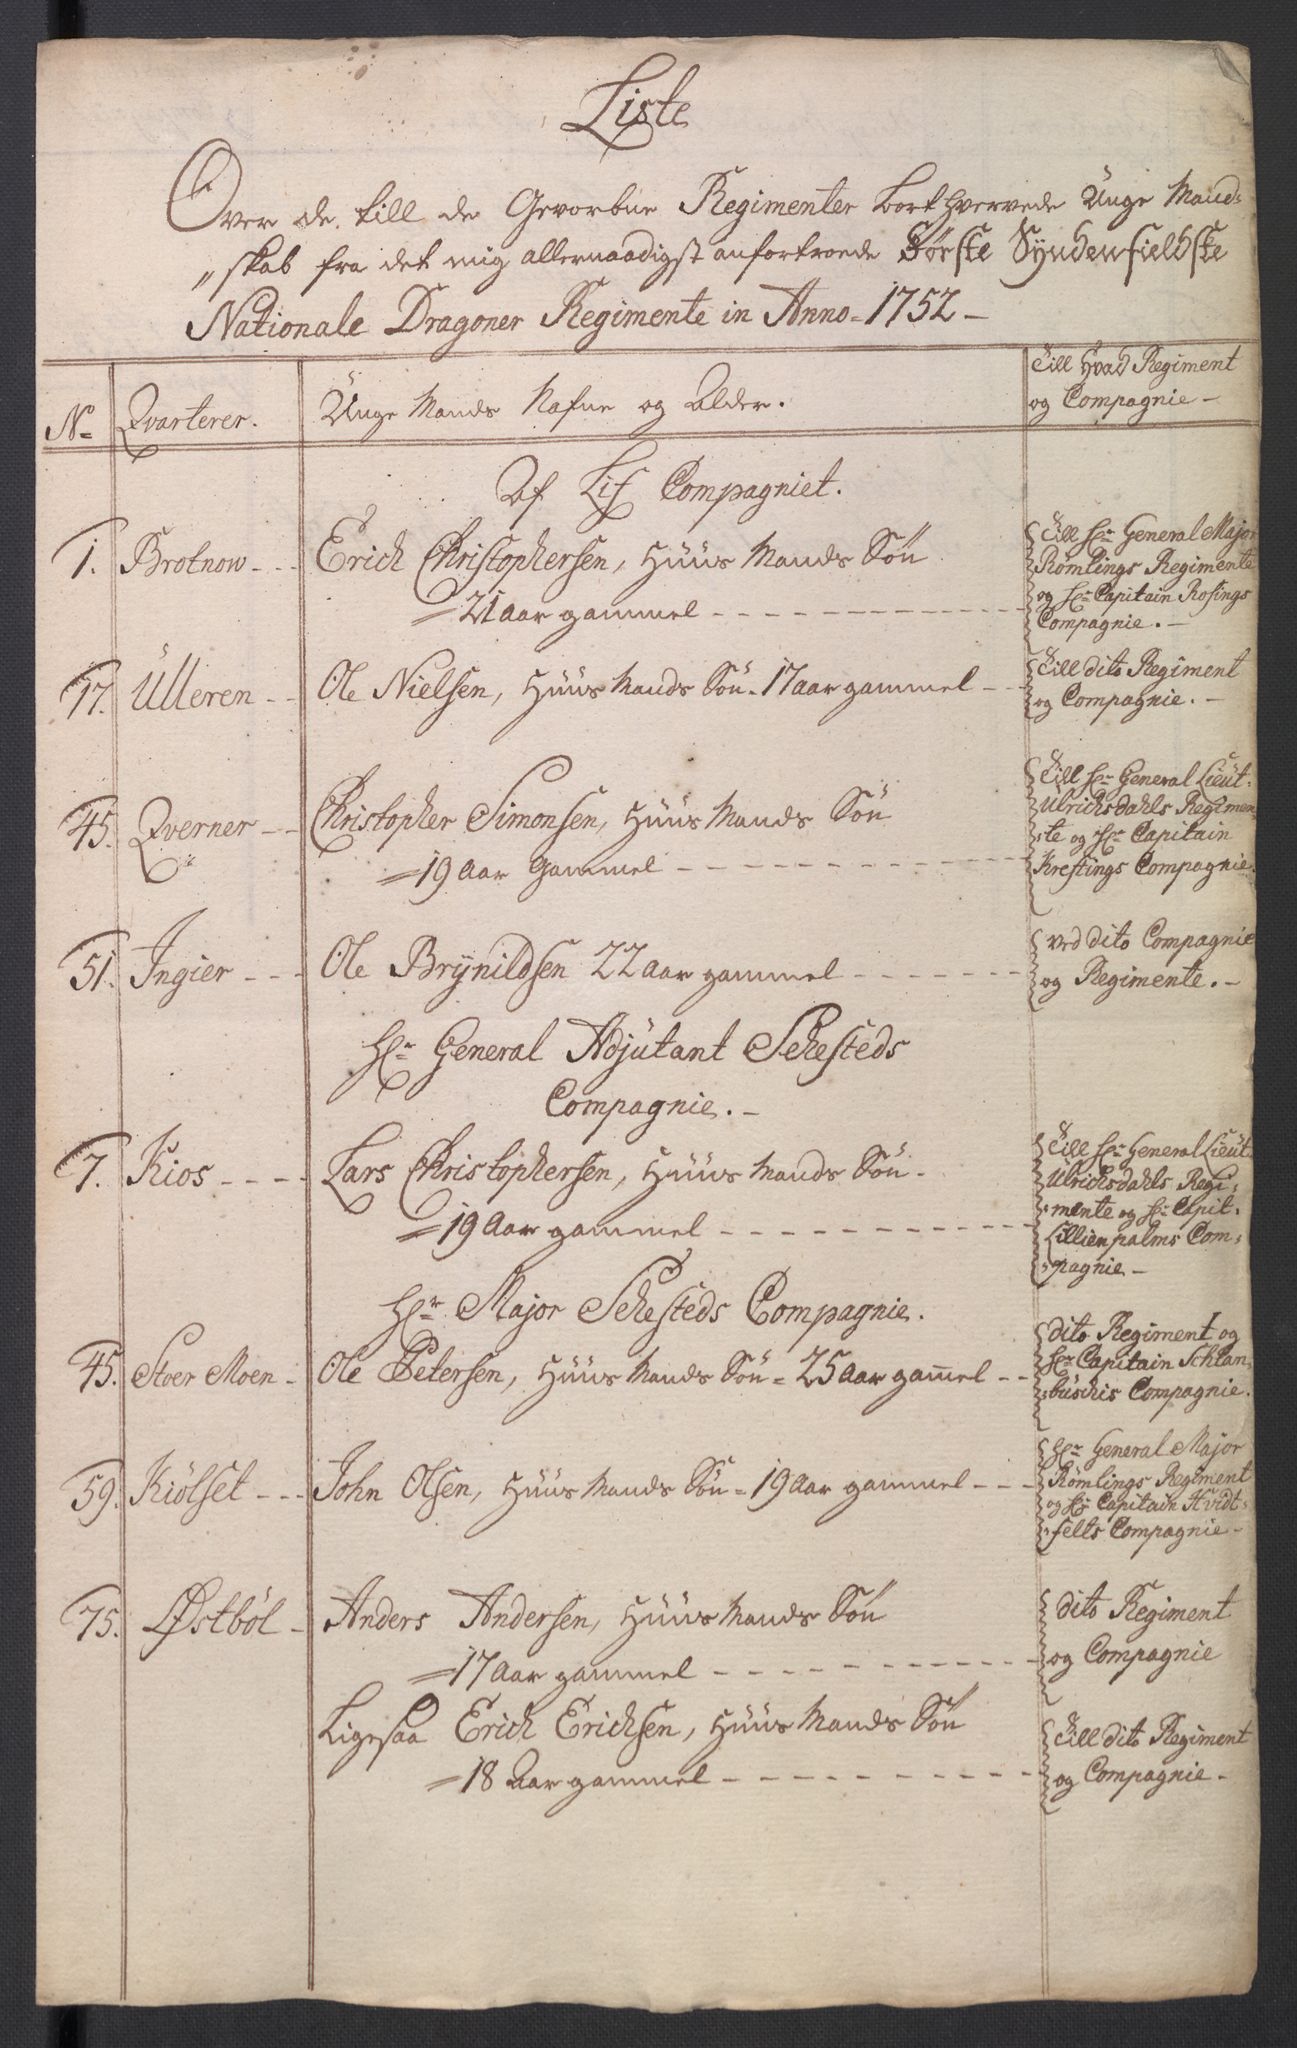 Liste
Over de till de Gevorbne Regimenter borthvervede Unge Mand-
„skab fra det mig allernaadigst anfortroede Første Syndenfieldske
Nationale Dragoner Regimente in Anno 1752
No Qvarterer. Unge Mands Nafne og Alder. Till Hvad Regiment
og Compagnie
Af Lif Compagniet.
1. Brotnow Erich Christophersen, Huus Mands Søn Till Hr General Major
Römlings Regimente
= 21 aar gammel og Hr Capitain Rosings
Compagnie.
17. Ulleren Ole Nielsen, Huus Mands Søn 17 aar gammel Till dito Regiment
og Compagnie.
45. Qverner Christopher Simonsen, Huus Mands Søn Till Hr General Lieut:
Ulrichsdahls Regimen-
= 19 Aar Gammel te og Hr Capitain
Krestings Compagnie
51. Ingier Ole Brÿnildsen 22 aar gammel ved dito Compagnie
og Regimente.
Hr General Adjutant Sehesteds
Compagnie.
7. Kios Lars Christophersen, Huus Mands Søn Till Hr General Lieut.
Ulrichsdahls Regi-
= 19 Aar gammel mente og Hr Capit:
Lillienpalms Com-
pagnie
Hr Major Sehesteds Compagnie.
45. Stoer Moen Ole Petersen, Huus Mands Søn = 25 Aar gam̅el dito Regiment og
Hr Capitain Schlan-
buschis Compagnie.
59. Kiölset John Olsen, Huus Mands Søn = 19 Aar gammel Hr General Major
Römlings Regiment
og Hr Capitain Hvidt-
felts Compagnie
75. Østböl Anders Andersen, Huus Mands Søn dito Regiment
= 17 Aar gammel og Compagnie
Ligesaa Erich Erichsen, Huus Mands Søn Till dito Regiment
= 18 Aar gammel og Compagnie